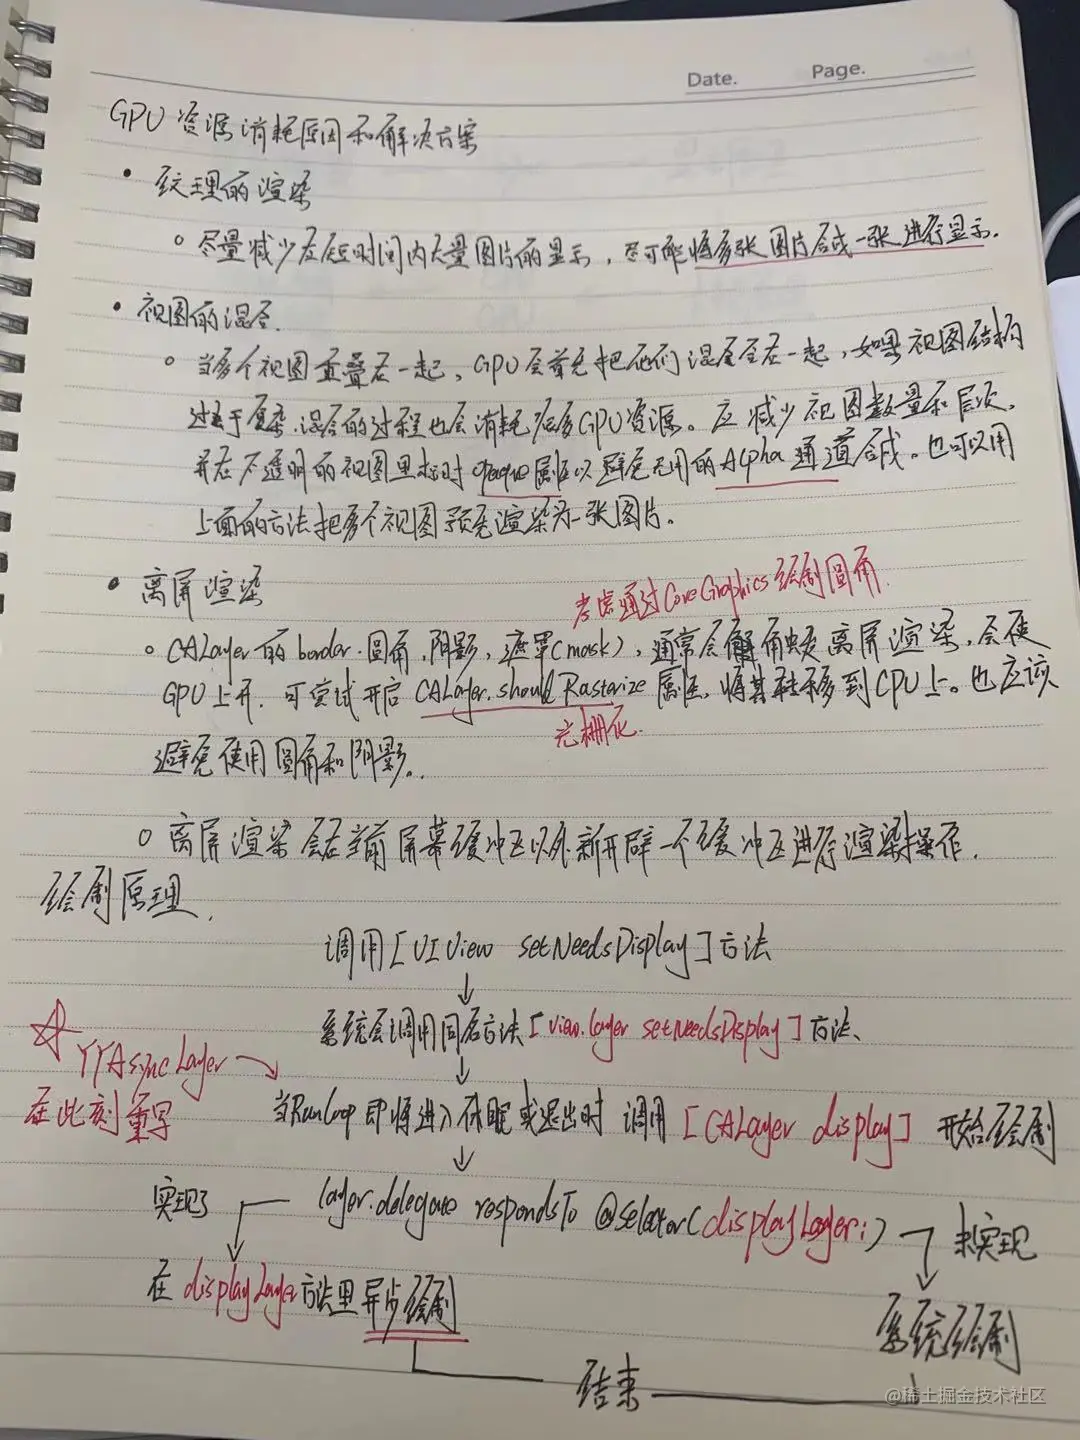 Date. Page.
GPU 资源消耗原因和解决方案
• 纹理的渲染
○ 尽量减少在短时间内大量图片的显示，尽可能将多张图片合成一张进行显示.
• 视图的混合.
○ 当多个视图重叠在一起，GPU会首先把他们混合在一起，如果视图结构
过于复杂，混合的过程也会消耗很多GPU资源。应减少视图数量和层次，
并在不透明的视图里标明opaque属性以避免无用的Alpha通道合成。也可以用
上面的方法把多个视图预先渲染为一张图片。
• 离屏渲染
考虑通过CoreGraphics绘制圆角.
○ CALayer的border.圆角,阴影,遮罩(mask)，通常会触发离屏渲染，会使
GPU上升. 可尝试开启CALayer.shouldRasterize属性，将其转移到CPU上。也应该
光栅化.
避免使用圆角和阴影..
○ 离屏渲染会在当前屏幕缓冲区以外新开辟一个缓冲区进行渲染操作.
绘制原理.
调用[UIView setNeedsDisplay]方法
↓
系统会调用同名方法[view.layer setNeedsDisplay]方法、
↓
☆ YYAsyncLayer
在此刻重写
当RunLoop即将进入休眠或退出时 调用[CALayer display] 开始绘制
↓
实现了
layer.delegate respondsTo @selector(displayLayer:)
未实现
在displayLayer方法里异步绘制
系统绘制
结束
@稀土掘金技术社区